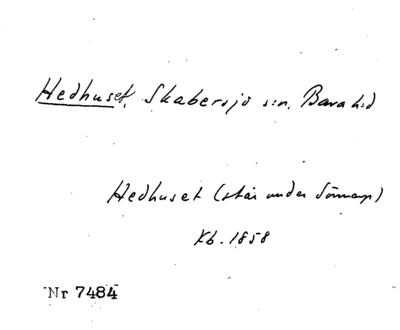 Hedhuset, Skabersjö sn, Bara hd
Hedhuset (står under Sönnarp)
Kb. 1858
Nr 7484